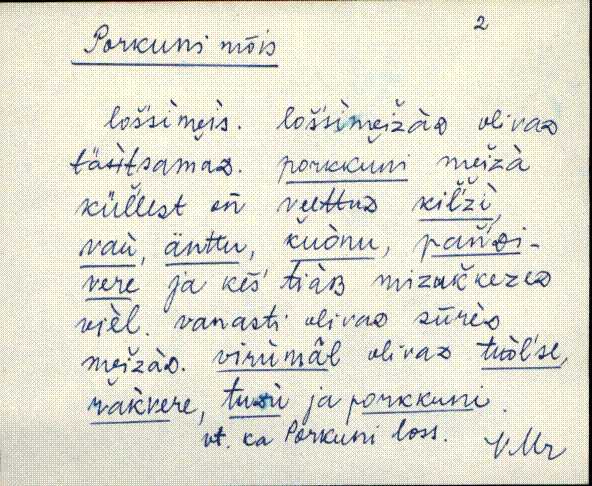 2
Porkuni mõis
lošsimeìs. lošsìmeìžàᴅ olivaᴅ
täsìtsamaᴅ. porkkuni meìžà
küllest on veettuᴅ kil'žì,
vaù, änttu, kuònu, pañᴅi-
vere ja keš tiàʙ mizukkezeᴅ
vièl. vanasti olivaᴅ sūrèᴅ
meìžàᴅ. virùmâl olivaᴅ tuòl'se,
ràkvere, tuᴅù ja porkkuni.
vt. ka Porkuni loss.
VMr